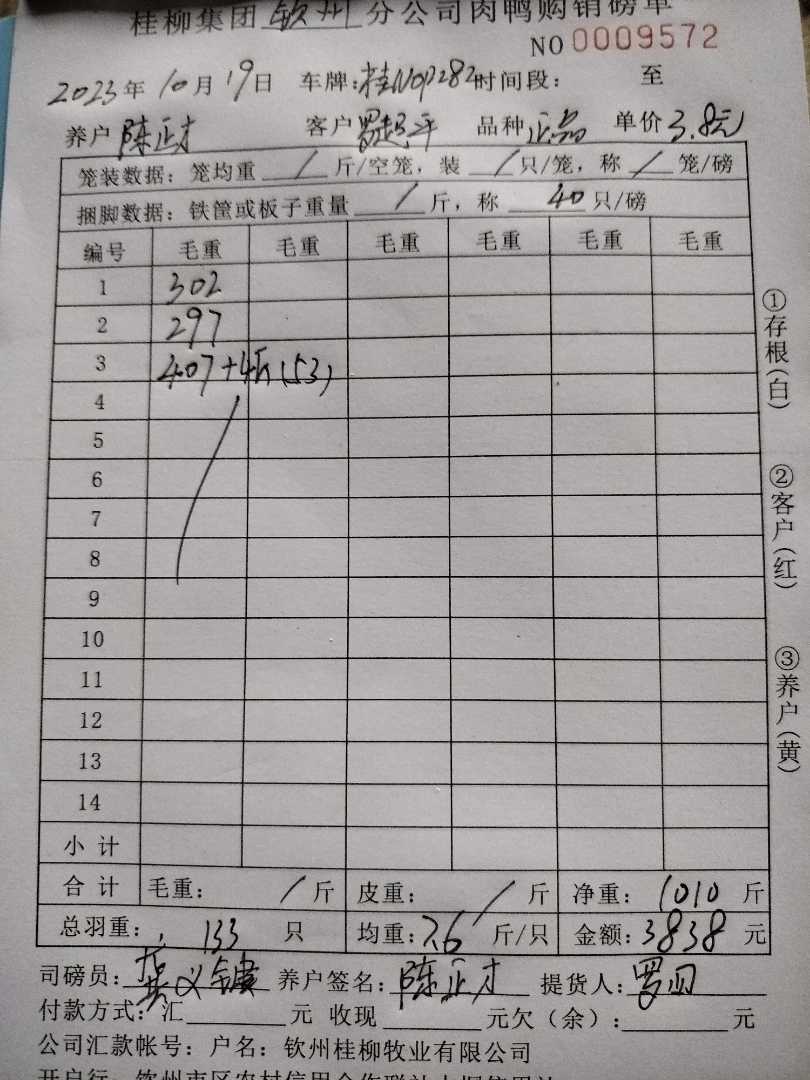 桂柳集团 钦州 分公司肉鸭购销磅单
NO 0009572
2023年10月19日 车牌:桂N0P282 时间段: 至
养户 陈正才 客户 罗超平 品种 正品 单价 3.8元
笼装数据: 笼均重 / 斤/空笼, 装 / 只/笼, 称 / 笼/磅
捆脚数据: 铁筐或板子重量 / 斤, 称 40 只/磅
编号 毛重 毛重 毛重 毛重 毛重 毛重
1 302
2 297
3 407+4斤(53)
4
5
6
7
8
9
10
11
12
13
14
小计
合计 毛重: / 斤 皮重: / 斤 净重: 1010 斤
总羽重: 133 只 均重: 7.6 斤/只 金额: 3838 元
司磅员: 义 养户签名: 陈正才 提货人: 罗
付款方式: 汇 元 收现 元欠(余): 元
公司汇款帐号: 户名: 钦州桂柳牧业有限公司
开户行: 钦州市区农村信用合作联社大垌信用社
①存根(白)
②客户(红)
③养户(黄)